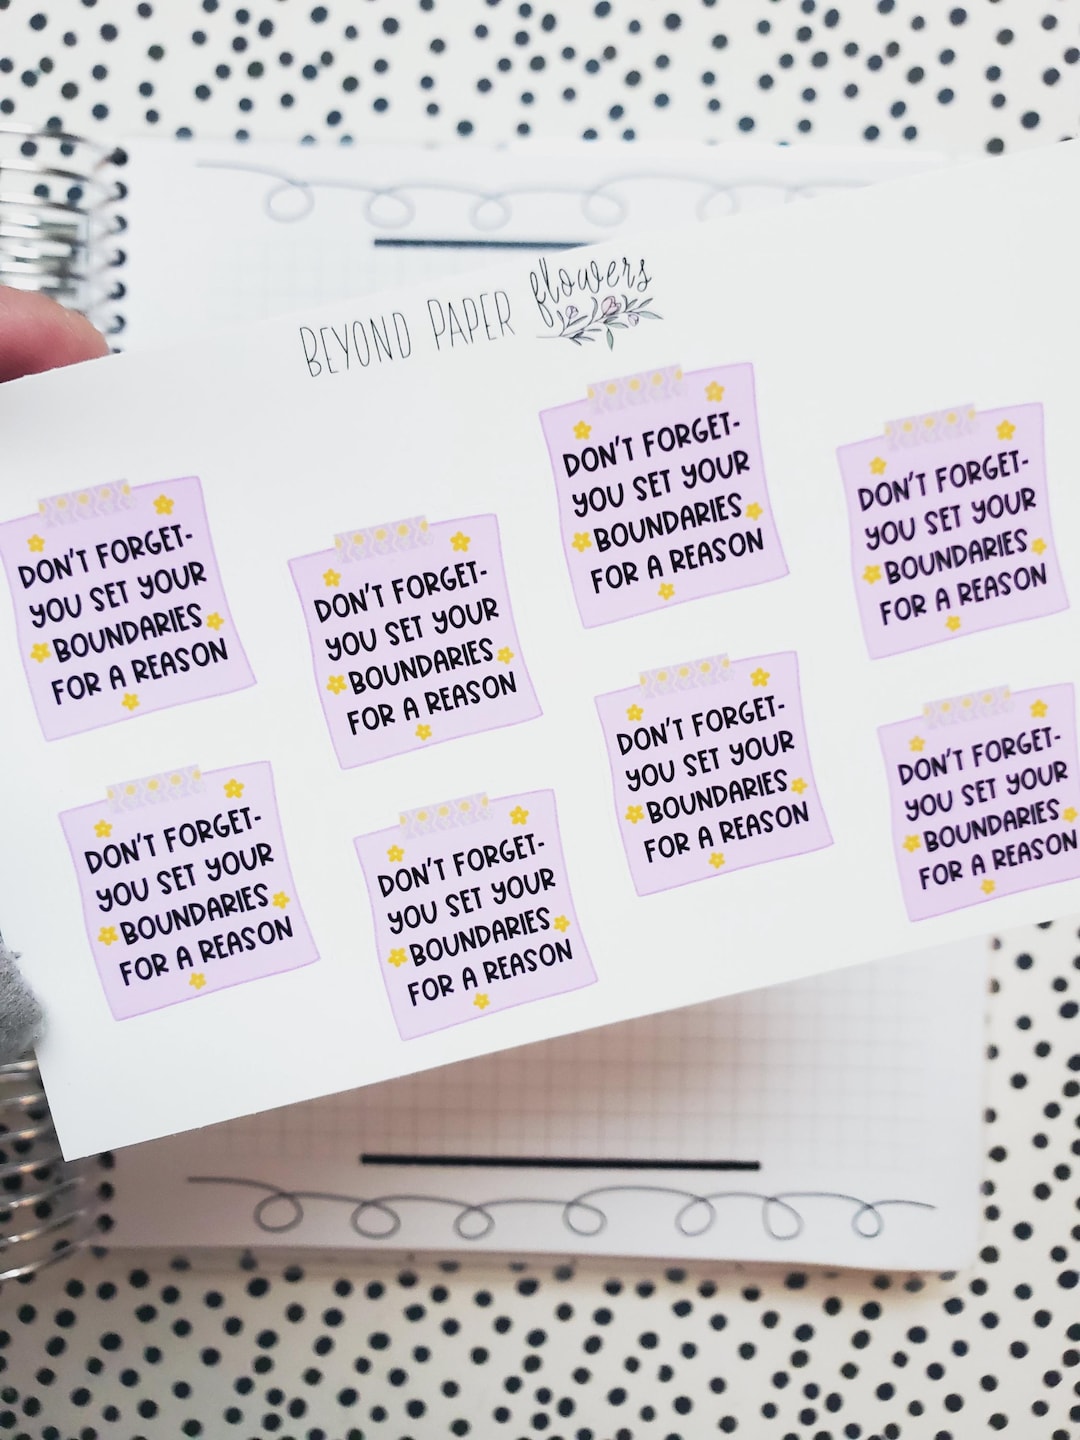 BEYOND PAPER flowers
DON'T FORGET-
YOU SET YOUR
BOUNDARIES
FOR A REASON
DON'T FORGET-
YOU SET YOUR
BOUNDARIES
FOR A REASON
DON'T FORGET-
YOU SET YOUR
BOUNDARIES
FOR A REASON
DON'T FORGET-
YOU SET YOUR
BOUNDARIES
FOR A REASON
DON'T FORGET-
YOU SET YOUR
BOUNDARIES
FOR A REASON
DON'T FORGET-
YOU SET YOUR
BOUNDARIES
FOR A REASON
DON'T FORGET-
YOU SET YOUR
BOUNDARIES
FOR A REASON
DON'T FORGET-
YOU SET YOUR
BOUNDARIES
FOR A REASON